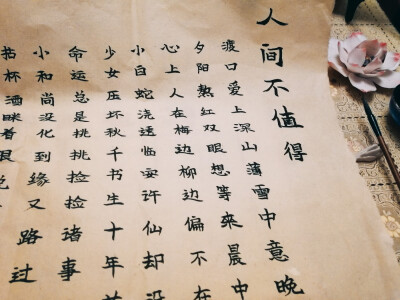 人间不值得
渡口爱上深山薄雪中意晚
夕阳熬红双眼想等來晨中
心上人在梅边柳边偏不在
小白蛇浇透临安许仙却没
少女压坏秋千书生十年
命运总是挑挑捡捡诸事
小和尚没化到缘又路过
杯酒眯着眼